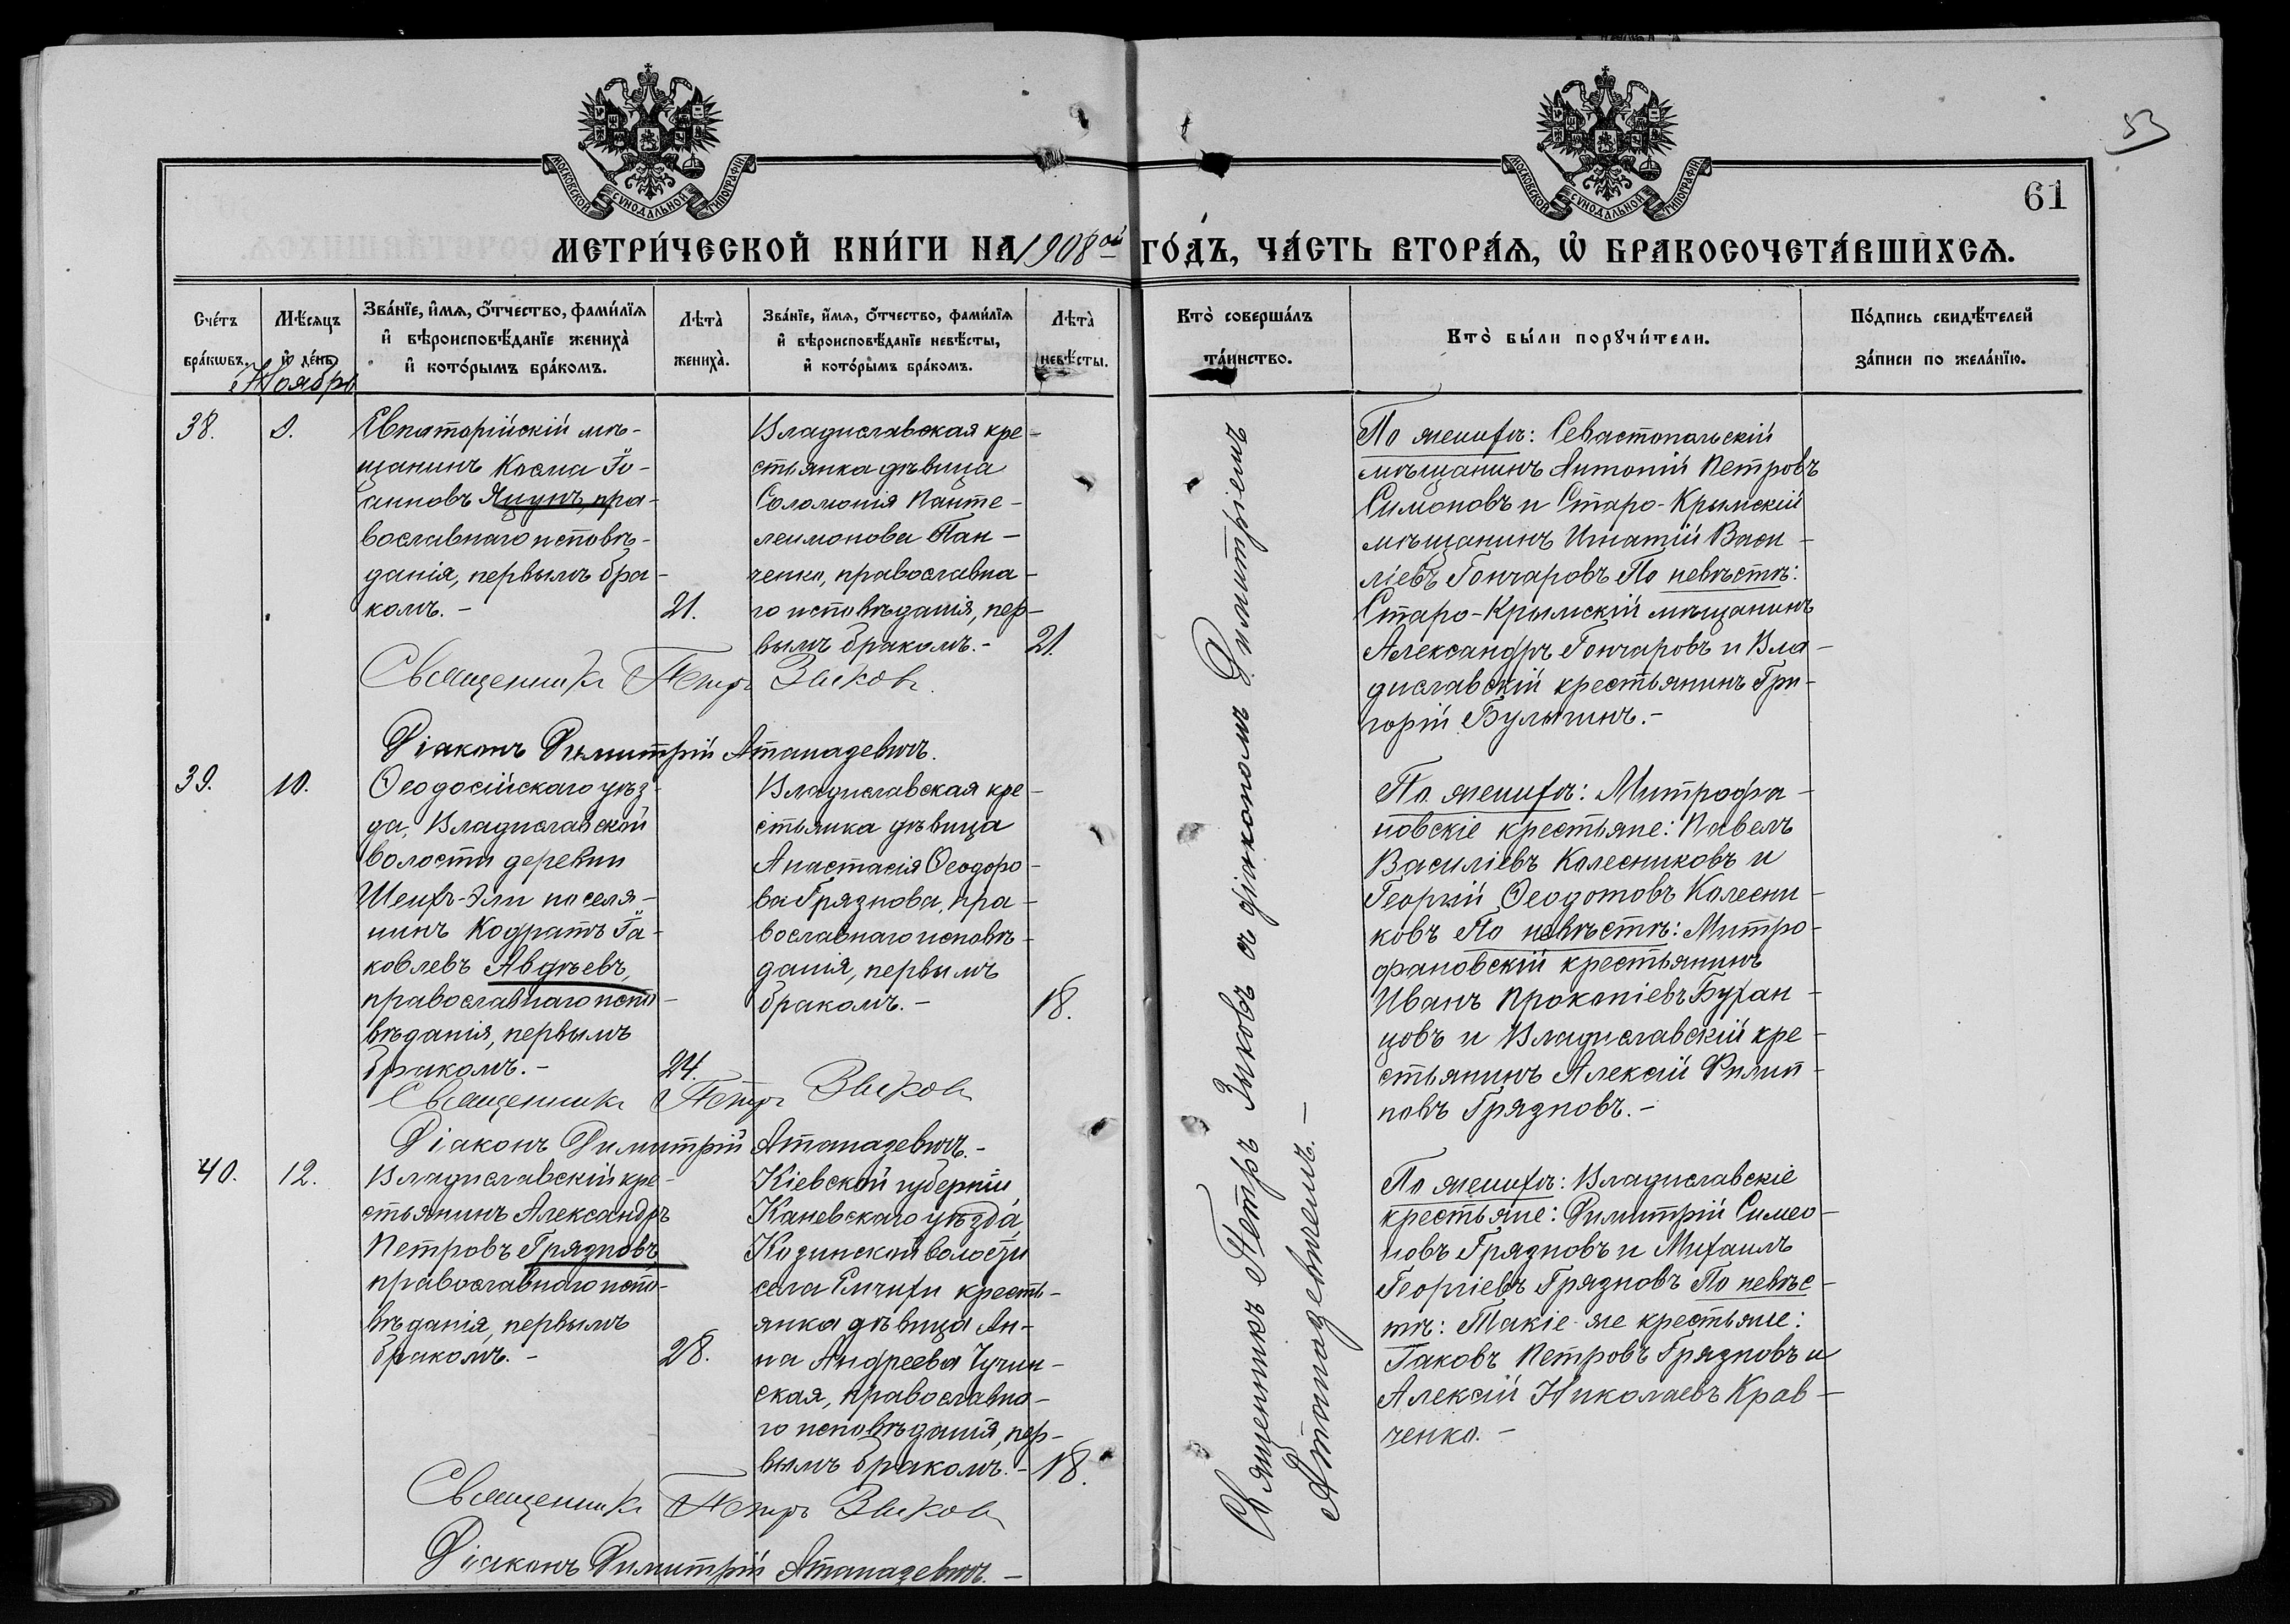 53
61
МОСКОВСКОЙ СѴНОДАЛЬНОЙ ТИПОГРАФІИ
МОСКОВСКОЙ СѴНОДАЛЬНОЙ ТИПОГРАФІИ
МЕТРИ́ЧЕСКОЙ КНИ́ГИ НА 1908ой ГО́ДЪ, ЧА́СТЬ ВТОРА́Ѧ, Ѡ҆ БРАКОСОЧЕТА́ВШИХСѦ.
Сче́тъ бра́кωвъ.
Мѣ́сяцъ и҆ де́нь.
Зва́нїе, и҆́мѧ, ѻ҆́тчество, фами́лїѧ и҆ вѣроисповѣ́данїе жениха̀ и҆ кото́рымъ бра́комъ.
Лѣта̀ жениха̀.
Зва́нїе, и҆́мѧ, ѻ҆́тчество, фами́лїѧ и҆ вѣроисповѣ́данїе невѣ́сты, и҆ кото́рымъ бра́комъ.
Лѣта̀ невѣ́сты.
Кто̀ соверша́лъ та́инство.
Кто̀ бы́ли порꙋчи́тели.
По́дпись свидѣ́телей за́писи по жела́нїю.
Ноябрь
38.
9.
Евпаторійскій мѣ-
щанинъ Косма Іо-
анновъ Яцунъ, пра-
вославнаго исповѣ-
данія, первымъ бра-
комъ.-
21.
Владиславская кре-
стьянка дѣвица
Соломонія Панте-
леимонова Пан-
ченко, православна-
го исповѣданія, пер-
вымъ бракомъ.-
21.
Священникъ Петръ Зыковъ
Діаконъ Димитрій Атаназевичъ.
По женихѣ: Севастопольскій
мѣщанинъ Антоній Петровъ
Симоновъ и Старо-Крымскій
мѣщанинъ Игнатій Васи-
ліевъ Гончаровъ По невѣстѣ:
Старо-Крымскій мѣщанинъ
Александръ Гончаровъ и Вла-
диславскій крестьянинъ Гри-
горій Булыгинъ.-
39.
10.
Ѳеодосійскаго уѣз-
да, Владиславской
волости деревни
Шейхъ-Эли поселя-
нинъ Кодратъ Іа-
ковлевъ Авдѣевъ,
православнаго испо-
вѣданія, первымъ
бракомъ.-
24.
Владиславская кре-
стьянка дѣвица
Анастасія Ѳеодоро-
ва Грязнова, пра-
вославнаго исповѣ-
данія, первымъ
бракомъ.-
18.
Священникъ Петръ Зыковъ
Діаконъ Димитрій Атаназевичъ.-
По женихѣ: Митрофа-
новскіе крестьяне: Павелъ
Василіевъ Колесниковъ и
Георгій Ѳеодотовъ Колесни-
ковъ По невѣстѣ: Митро-
фановскій крестьянинъ
Иванъ Прокопіевъ Бухан-
цовъ и Владиславскій кре-
стьянинъ Алексій Филип-
повъ Грязновъ.-
40.
12.
Владиславскій кре-
стьянинъ Александръ
Петровъ Грязновъ,
православнаго испо-
вѣданія, первымъ
бракомъ.-
28.
Кіевской губерніи,
Каневскаго уѣзда,
Козинской волости
села кресть-
янка дѣвица Ан-
на Андреева Чучин-
ская, православна-
го исповѣданія, пер-
вымъ бракомъ.-
18.
Священникъ Петръ Зыковъ
Діаконъ Димитрій Атаназевичъ.-
По женихѣ: Владиславскіе
крестьяне: Димитрій Симео-
новъ Грязновъ и Михаилъ
Георгіевъ Грязновъ По невѣс-
тѣ: Такіе-же крестьяне:
Іаковъ Петровъ Грязновъ и
Алексій Николаевъ Крав-
ченко.-
Священникъ Петръ Зыковъ съ діакономъ Димитріемъ
Атаназевичемъ.-